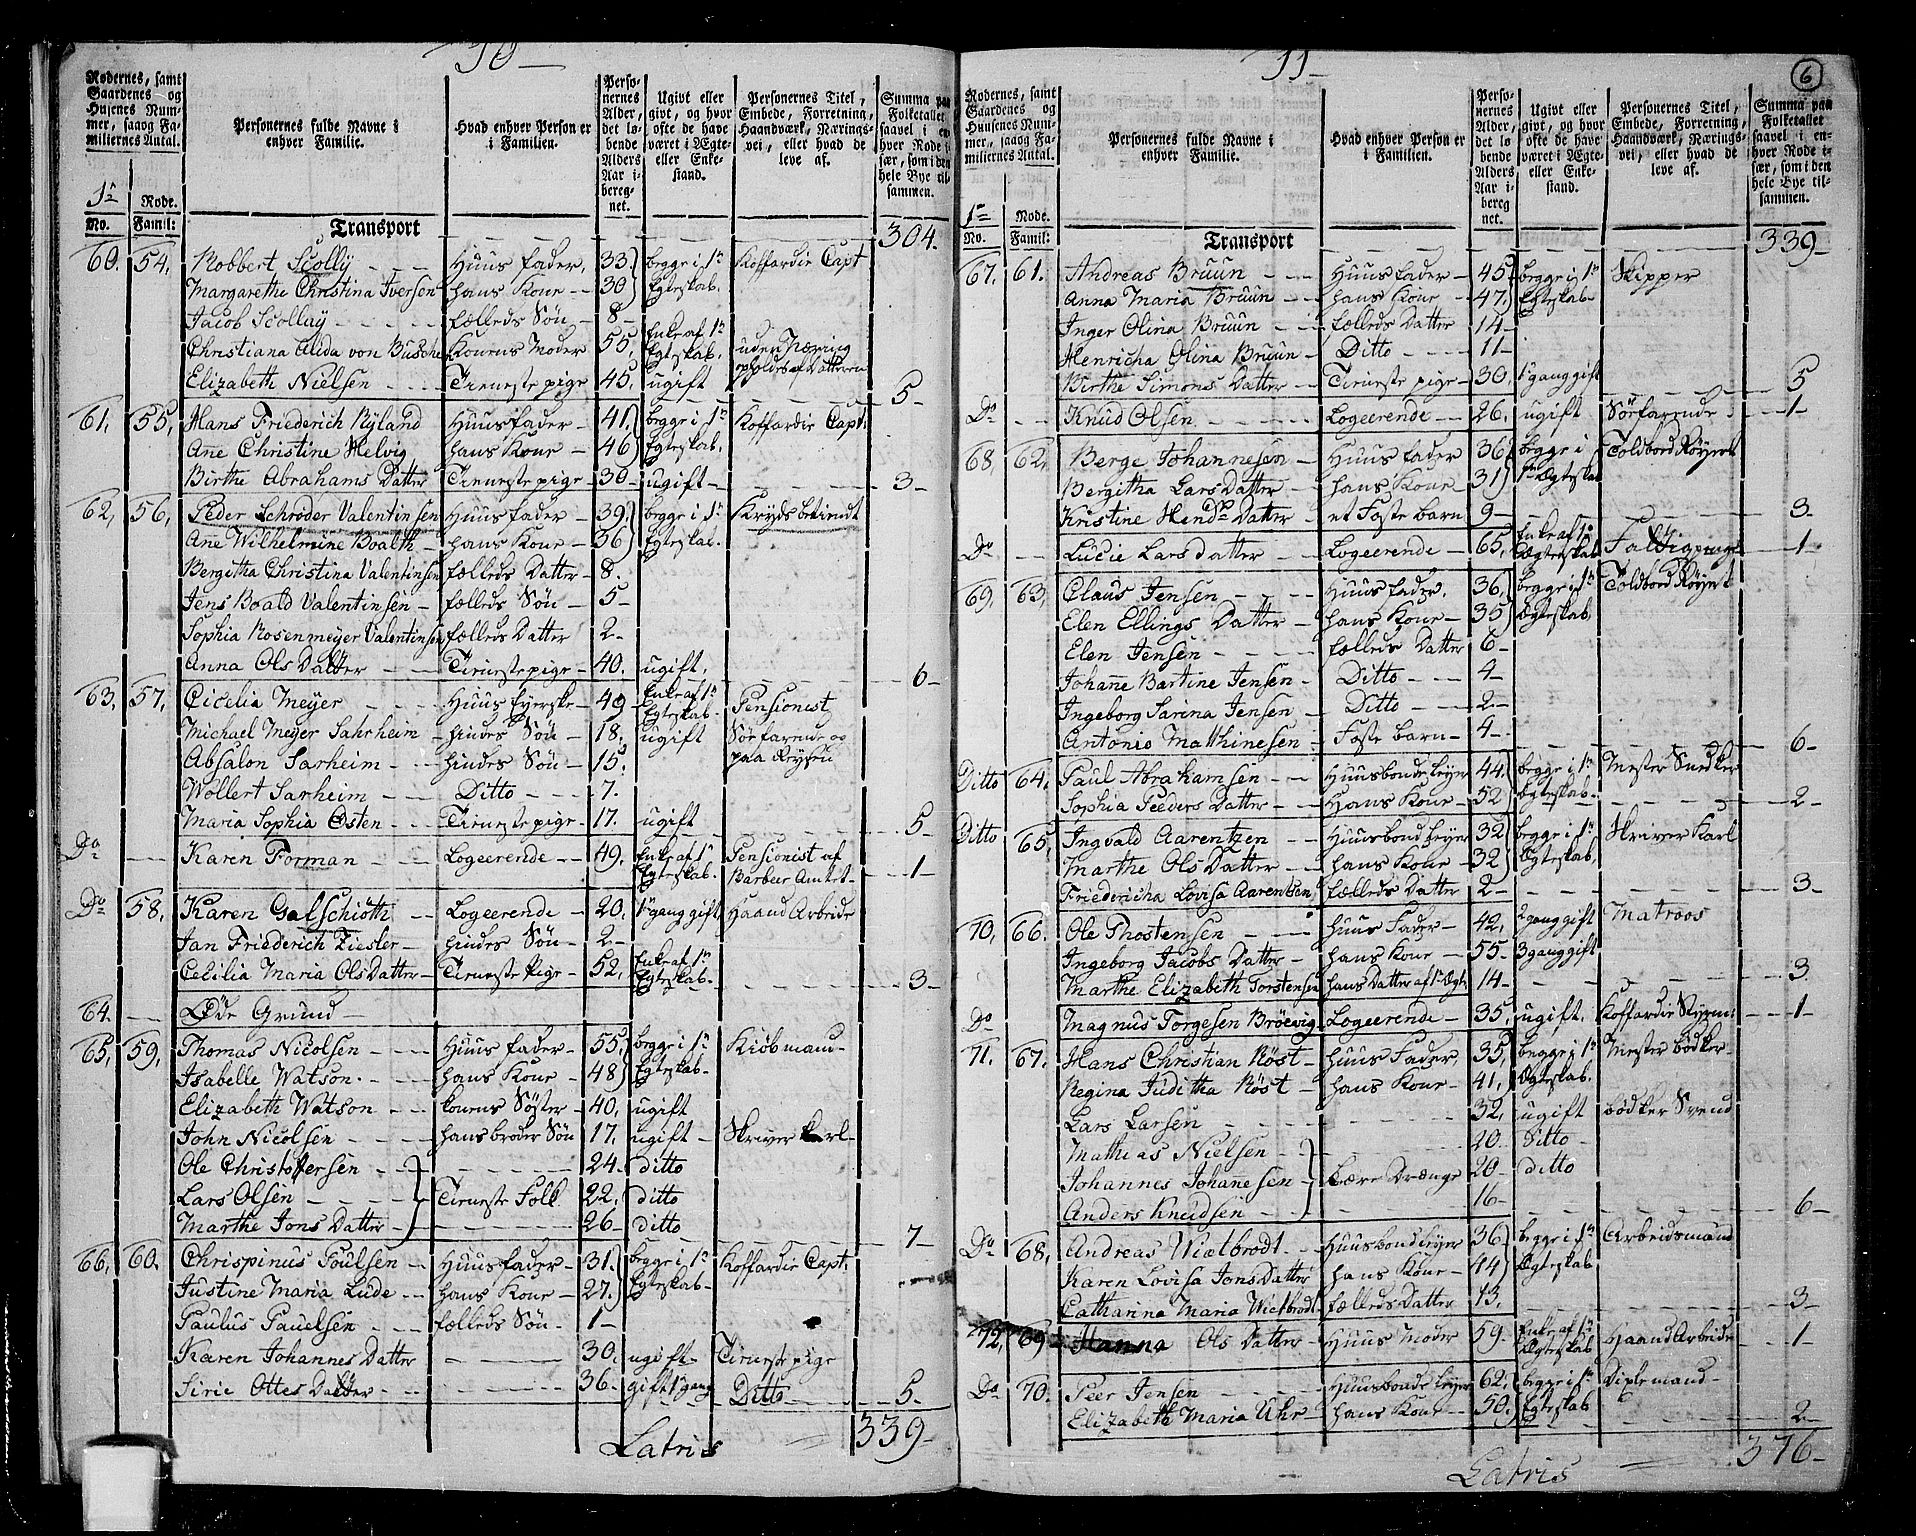 10
Rodernes, samt Gaardenes og Husenes Nummer, saavog Familiernes Antal.
Personernes fulde Navne i enhver Familie.
Hvad enhver Person er i Familien.
Personernes Alder, det løbende Alders Aar iberegnet.
Ugivt eller givt, og hvor ofte de have været i Ægte- eller Enkestand.
Personernes Titel, Embede, Forretning, Haandværk, Næringsvei, eller hvad de leve af.
Summa paa Folketallet saavel i enhver Rode især, som i den hele Bye tilsammen.
1te Rode.
No. Famil:
Transport 304.
60. 54. Robbert Scolly Huusfader, 33. begge i 1te Koffardie Capt
Margarethe Christina Iversen hans Kone 30 Egteskab.
Jacob Scollay fælleds Søn 8
Christiana Auda von Busche Konens Moder 55, Enke af 1te Egteskab. uden Næring opholdes af Datteren
Elizabeth Nielsen Tieneste pige 45, ugift 5
61, 55, Hans Friederich Ryland Huusfader 41. begge i 1te Koffardie Capt:
Ane Christine Helvig hans Kone 46 Egteskab.
Birthe Abrahams Datter Tieneste pige 30 ugift 3
62, 56, Peder Schrøder Valentinsen Huusfader 39. begge i 1te Krydsbetient
Ane Wilhelmine Boalth hans Kone 36 Egteskab.
Bergitha Christina Valentinsen fælleds Datter 8.
Jens Boald Valentinsen fælleds Søn 5
Sophia Rosenmeyer Valentinsen fælleds Datter 2
Anna Ols Datter Tienestepige 40. ugift. 6
63, 57, Cicelia Meyer Huus Eyerske 49 Enke af 1te Egteskab Pensionist
Michael Meyer Sahrheim hindes Søn 18, ugift Søefarende og paa Reysen
Absalon Sarheim hindes Søn 15.
Wollert Sarheim Ditto 7.
Maria Sophia Osten Tieneste pige 17. ugift 5
Do Karen Forman Logeerende 49. Enke af 1te Egteskab. Pensionist af Barbeer Amtet 1
Do 58, Karen Galschiøth Logeerende 20. 1te gang gift, Haand Arbeide
Jan Friederich Ziesler hindes Søn 2
Cecilia Maria Ols Datter Tieneste Pige 52, Enke af 1te Egteskab. 3
64. Øde Grund
65, 59, Thomas Nicolsen Huusfader 55, begge i 1te Kiøbmand
Isabelle Watson. hans Kone 48 Egteskab
Elizabeth Watson konens Søster 40, ugift
John Nicolsen hans broder Søn 17, ugift Skriver karl
Ole Christofersen 24 ditto
Lars Olsen Tieneste Folk 22, ditto
Marthe Jons Datter 26 ditto 7
66, 60. Chrispinus Poulsen Huusfader 31. begge i 1te Koffardie Capt,
Justine Maria Lude hans Kone 27. Egteskab
Paulus Pauelsen fælleds Søn 1
Karen Johannes Datter 30, ugift Tieneste pige
Sirie Ottes Datter 36. gift 1te gang Ditto 5.
Latris 339
11
6
Rodernes, samt Gaardenes og Huusenes Nummer, saavog Familiernes Antal.
Personernes fulde Navne i enhver Familie.
Hvad enhver Person er i Familien.
Personernes Alder, det løbende Alders Aar iberegnet.
Ugivt eller givt, og hvor ofte de have været i Ægte- eller Enkestand.
Personernes Titel, Embede, Forretning, Haandværk, Næringsvei, eller hvad de leve af.
Summa paa Folketallet saavel i enhver Rode især, som i den hele Bye tilsammen.
1te Rode.
No. Famil:
Transport 339
67, 61. Andreas Bruun Huusfader 45. begge i 1te Skipper
Anna Maria Bruun hans Kone 47. Egteskab
Inger Olina Bruun fælleds Datter 14
Henricha Olina Bruun Ditto 11
Birthe Simons Datter Tieneste pige 30, 1te gang gift 5
Do Knud Olsen Logeerende 26, ugift Søefarende 1
68, 62, Berge Johannesen Huusfader 36 begge i Toldbord Røyert
Bergitha Lars Datter hans Kone 31 1te Ægteskab
Kristine Hends Datter et Foste barn 9 3
Do Lucie Lars datter Logeerende 65, Enke af 1te Ægteskab 1
69, 63, Claus Jensen Huusfader. 36, begge i 1te Toldbord Røyert
Elen Ellings Datter hans Kone 35 Ægteskab,
Elen Jensen fælleds Datter 6
Johane Bartine Jensen Ditto 4
Ingeborg Sarina Jensen Ditto 2
Antonio Matthinesen Foste barn 4 6
Ditto 64, Paul Abrahamsen Huusbonde leyer 44. begge i 1te Mester Snedker
Sophia Peeders Datter Hans Kone 52 Egteskab. 2
Ditto 65, Ingvald Aarentzen Huusbond leyer 32 begge i 1te Skriver Karl
Marthe Ols Datter hans Kone 32 Ægteskab,
Friedericha Lovisa Aarentsen fælleds Datter 2 3
70, 66. Ole Thostensen Huus Fader 42, 2 gang gift Matroos
Ingeborg Jacobs Datter hans Kone 55 3 gang gift
Marthe Elizabeth Torstensen hans Datter af 1te Ægt. 14 3
Do Magnus Torgesen Brøevig Logeerende 35, ugift. Koffardie Styrm: 1
71. 67. Hans Christian Røst Huus Fader 35, begge i 1te Mester bødker
Regina Juditha Røst hans Kone 41, Ægteskab.
Lars Larsen 32, ugift bødker Svend
Mathias Nielsen 20 Ditto
Johannes Johanesen Lære Drænge 20 ditto
Anders Knudsen 16 6
Do 68, Andreas Wielbrodt Huusbond leyer 36. begge i 1te Arbeidsmand
Karen Lovisa Jons Datter hans Kone 44 Ægteskab
Catharina Maria Wielbrodt fælleds Datter 13. 3
72, 69 Hanna Ols Datter Huus Moder 59. Enke af 1te Ægteskab Haand Arbeide 1
Do 70. Peer Jensen Huusbonde leyer 62, begge i 1te
Elizabeth Maria Uhr hans Kone 50. Egteskab 2
Latris 376